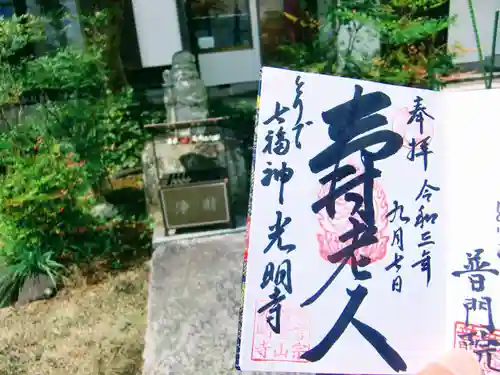 奉拝
令和三年
九月七日
寿老人
とりで
七福神
光明寺
普門院
浄財